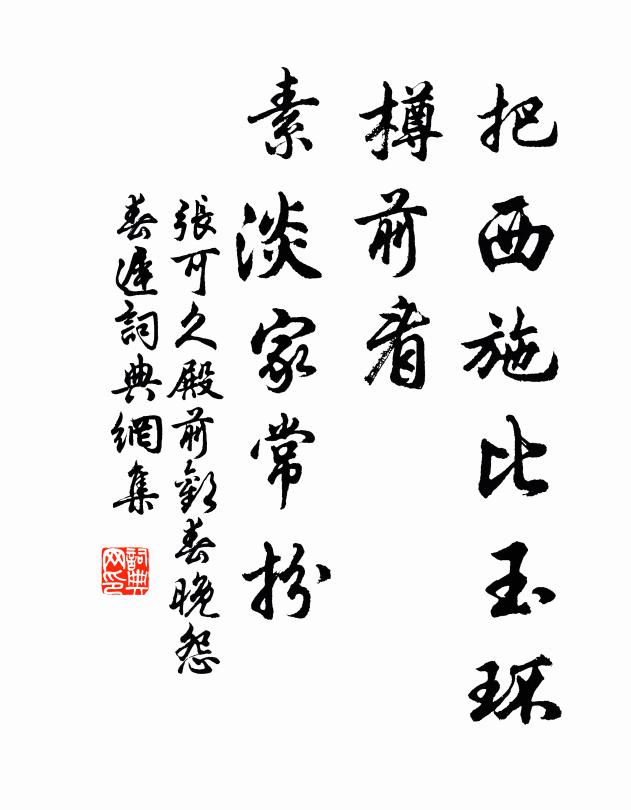 把西施比玉環
樽前看
素淡家常扮
張可久殿前歡春晚怨
春遲詞典網集
詞典网印